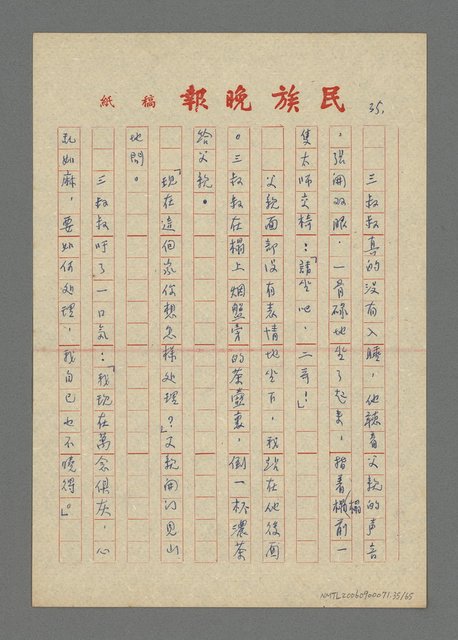 民族晚報 稿紙
35.
三叔叔真的沒有入睡，他聽着父親的声音
，張開双眼，一骨碌地坐了起來，指着榻前一
隻太师交椅：「請坐吧，二哥！」
父親面部沒有表情地坐下，我站在他後面
。三叔叔在榻上烟盤旁的茶壺裏，倒一杯濃茶
給父親。
「現在這個家你想怎樣处理？」父親開门見山
地問。
三叔叔吁了一口气：「我現在萬念俱灰，心
乱如麻，要如何处理，我自己也不曉得。」
NMTL20060900071.35/65